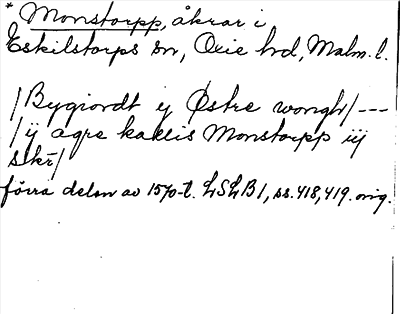 * Monstorpp, åkrar i
Eskilstorps sn, Oxie hd, Malm. l.
/Bygiordt ij Østre wongh/ ---
/ij agre kallis Monstorpp iij
skr/
förra delen av 1570-t. LSLB1, ss. 418, 419. orig.